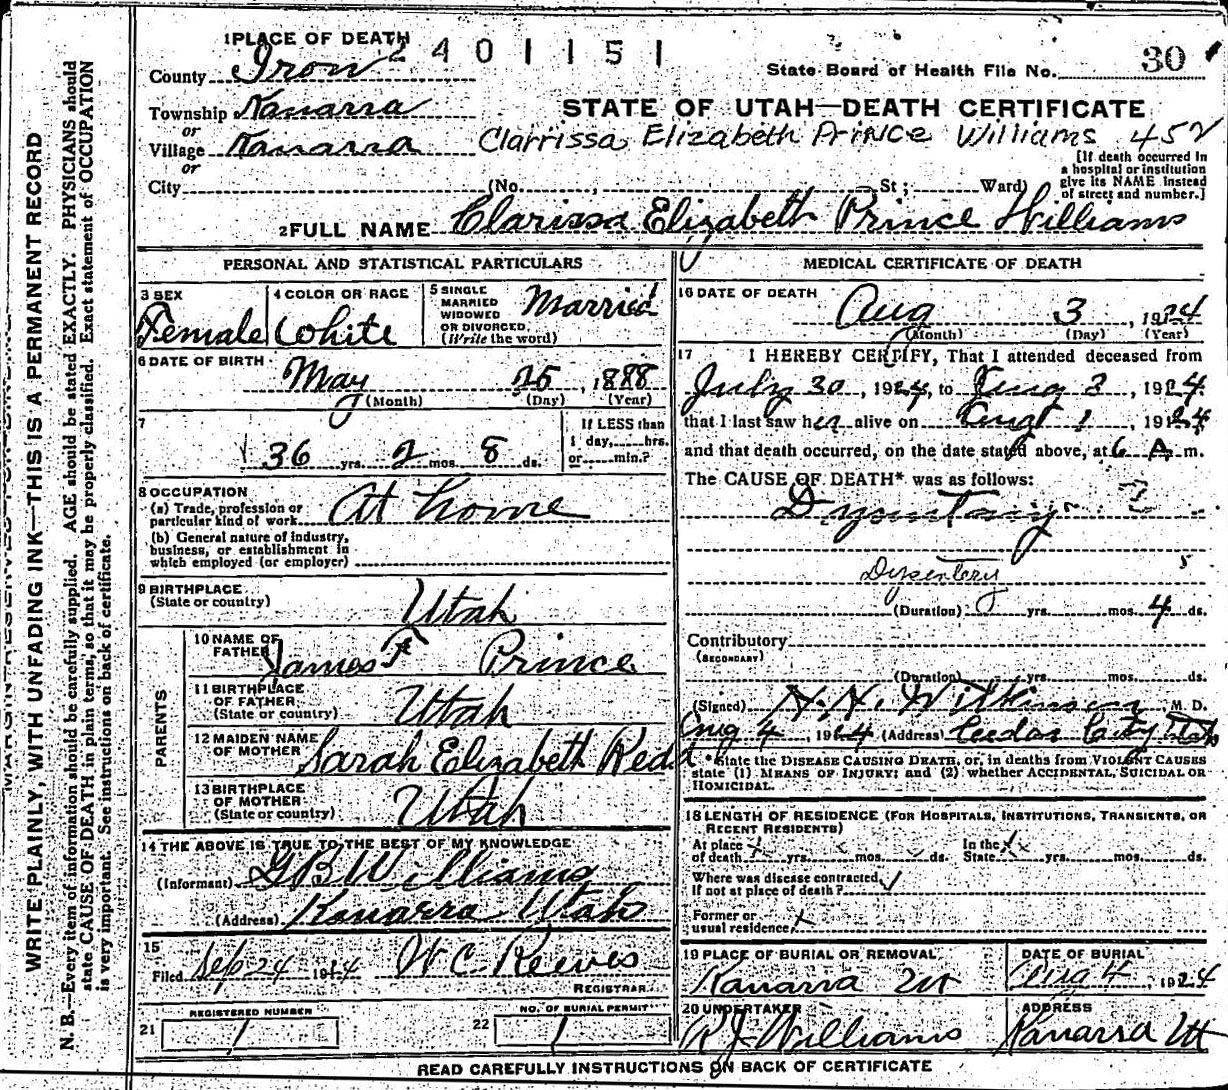 1 PLACE OF DEATH 2 4 0 1 1 5 1
County Iron
State Board of Health File No. 30
Township Kanarra
or
Village Kanarra
or
City (No. , St; Ward)
STATE OF UTAH—DEATH CERTIFICATE
Clarrissa Elizabeth Prince Williams 452
[If death occurred in
a hospital or institution
give its NAME instead
of street and number.]
2 FULL NAME Clarissa Elizabeth Prince Williams
PERSONAL AND STATISTICAL PARTICULARS
3 SEX
Female
4 COLOR OR RACE
White
5 SINGLE
MARRIED
WIDOWED
OR DIVORCED
(Write the word)
Married
6 DATE OF BIRTH
May 25, 1888
(Month) (Day) (Year)
7
36 yrs. 2 mos. 8 ds.
If LESS than
1 day, hrs.
or min.?
8 OCCUPATION
(a) Trade, profession or
particular kind of work At home
(b) General nature of industry,
business, or establishment in
which employed (or employer)
9 BIRTHPLACE
(State or country) Utah
PARENTS
10 NAME OF
FATHER James F Prince
11 BIRTHPLACE
OF FATHER
(State or country) Utah
12 MAIDEN NAME
OF MOTHER Sarah Elizabeth Redd
13 BIRTHPLACE
OF MOTHER
(State or country) Utah
14 THE ABOVE IS TRUE TO THE BEST OF MY KNOWLEDGE
(Informant) G B Williams
(Address) Kanarra Utah
15
Filed Sep 24 1924 W C Reeves
REGISTRAR
21 REGISTERED NUMBER
1
22 NO. OF BURIAL PERMIT
1
MEDICAL CERTIFICATE OF DEATH
16 DATE OF DEATH
Aug 3, 1924
(Month) (Day) (Year)
17 I HEREBY CERTIFY, That I attended deceased from
July 30, 1924, to Aug 3, 1924.
that I last saw her alive on Aug 1, 1924
and that death occurred, on the date stated above, at 6 A m.
The CAUSE OF DEATH* was as follows:
Dysentary
Dysentery
(Duration) yrs. mos. 4 ds.
Contributory
(SECONDARY)
(Duration) yrs. mos. ds.
(Signed) H. H. Wilkinson, M. D.
Aug 4, 1924 (Address) Cedar City Utah
*State the DISEASE CAUSING DEATH, or, in deaths from VIOLENT CAUSES
state (1) MEANS OF INJURY; and (2) whether ACCIDENTAL, SUICIDAL OR
HOMICIDAL.
18 LENGTH OF RESIDENCE (FOR HOSPITALS, INSTITUTIONS, TRANSIENTS, OR
RECENT RESIDENTS)
At place In the
of death yrs. mos. ds. State yrs. mos. ds.
Where was disease contracted,
If not at place of death?
Former or
usual residence
19 PLACE OF BURIAL OR REMOVAL
Kanarra Ut
DATE OF BURIAL
Aug 4, 1924
20 UNDERTAKER
R J Williams
ADDRESS
Kanarra Ut
READ CAREFULLY INSTRUCTIONS ON BACK OF CERTIFICATE
WRITE PLAINLY, WITH UNFADING INK—THIS IS A PERMANENT RECORD
N. B.—Every item of information should be carefully supplied. AGE should be stated EXACTLY. PHYSICIANS should
state CAUSE OF DEATH in plain terms, so that it may be properly classified. Exact statement of OCCUPATION
is very important. See instructions on back of certificate.